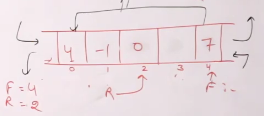 4 -1 0 7
0 1 2 3 4
F = 4
R = 2
R
F = -